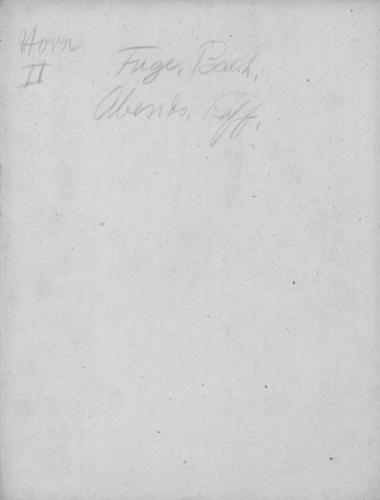 Horn
II
Fuge, Bach.
Abends, Raff.